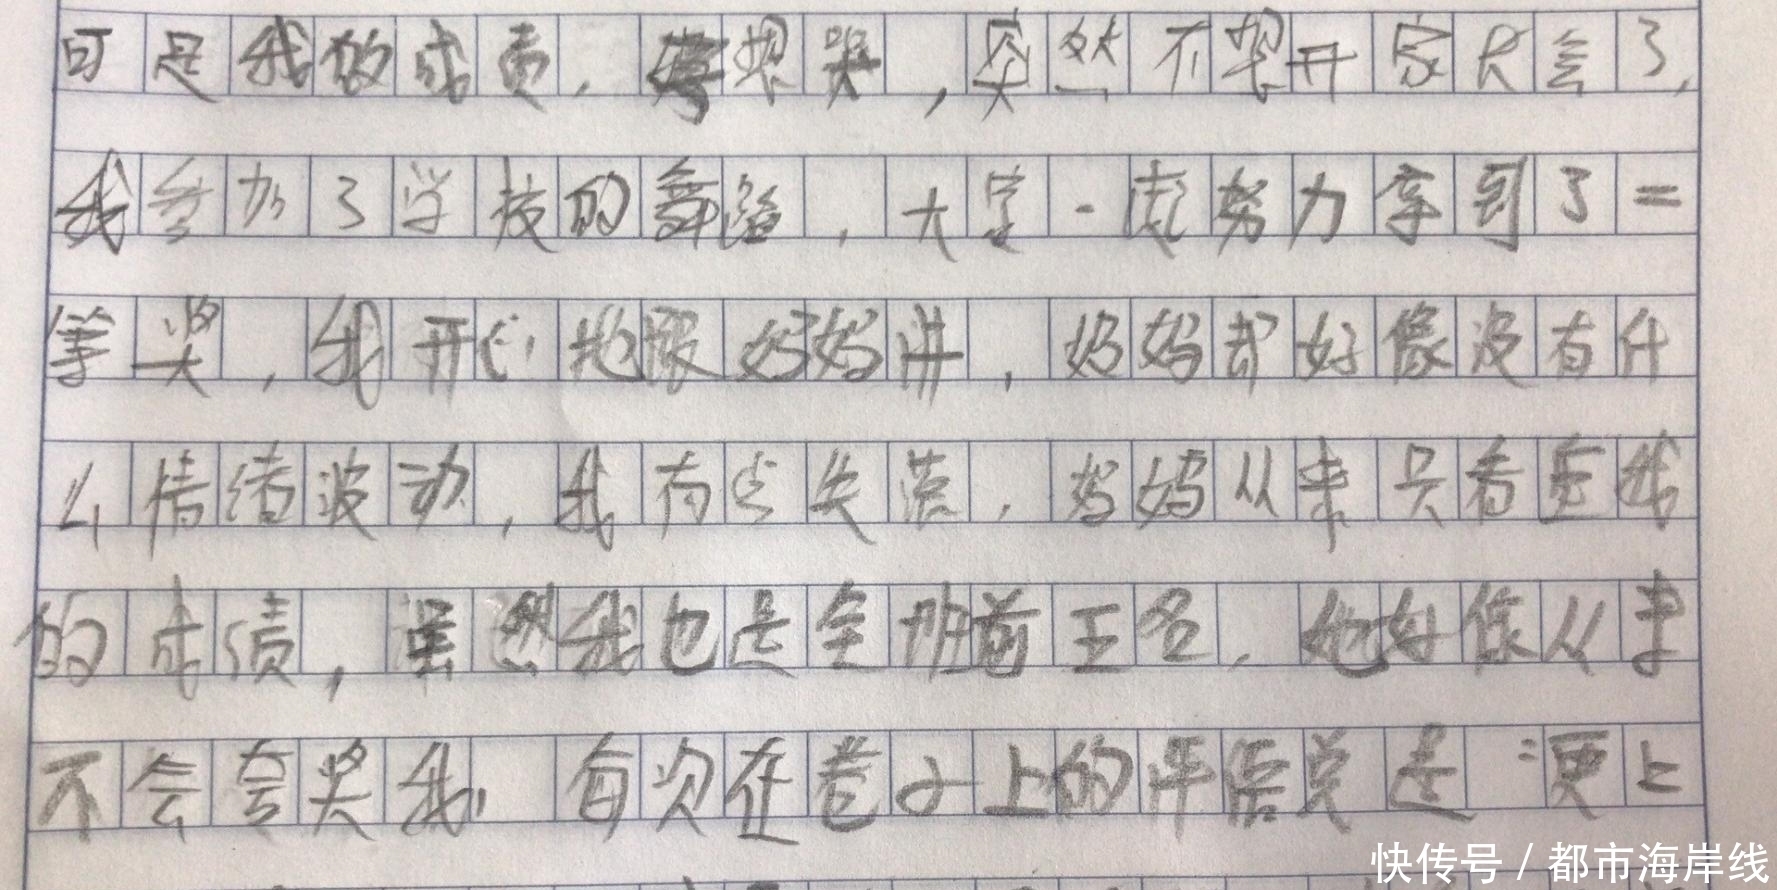 可是我的成责，想哭，突然不想开家长会了，
我参加了学校的舞蹈，大字一成努力拿到了二
等奖，我开心地跟妈妈讲，妈妈却好像没有什
么情绪波动，我有点失落，妈妈从来只看重我
的成绩，虽然我也是全班前五名，她好像从来
不会夸奖我，每次在卷子上的评语总是“更上
快传号/都市海岸线